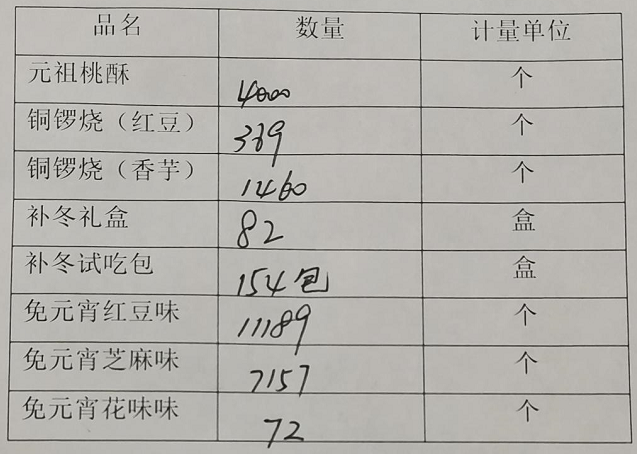 品名 数量 计量单位
元祖桃酥 4000 个
铜锣烧（红豆） 369 个
铜锣烧（香芋） 1460 个
补冬礼盒 82 盒
补冬试吃包 154包 盒
免元宵红豆味 11189 个
免元宵芝麻味 7157 个
免元宵花味味 72 个